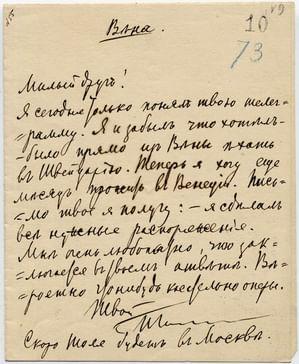 10
73
Вѣна.
Милый другъ!
Я сегодня только понялъ твою теле-
грамму. Я и забылъ что хотѣлъ
было прямо изъ Вѣны ѣхать
въ Швейцарію. Теперь я хочу еще
мѣсяцъ прожить въ Венеціи. Пись-
мо твое я получу: – я сдѣлалъ
всѣ нужныя распоряженія.
Мнѣ очень любопытно, что зак-
лючается въ твоемъ отвѣтѣ. Вѣ-
роятно что нибудь касательно оперы.
Твой
Скоро Толя будетъ въ Москвѣ.